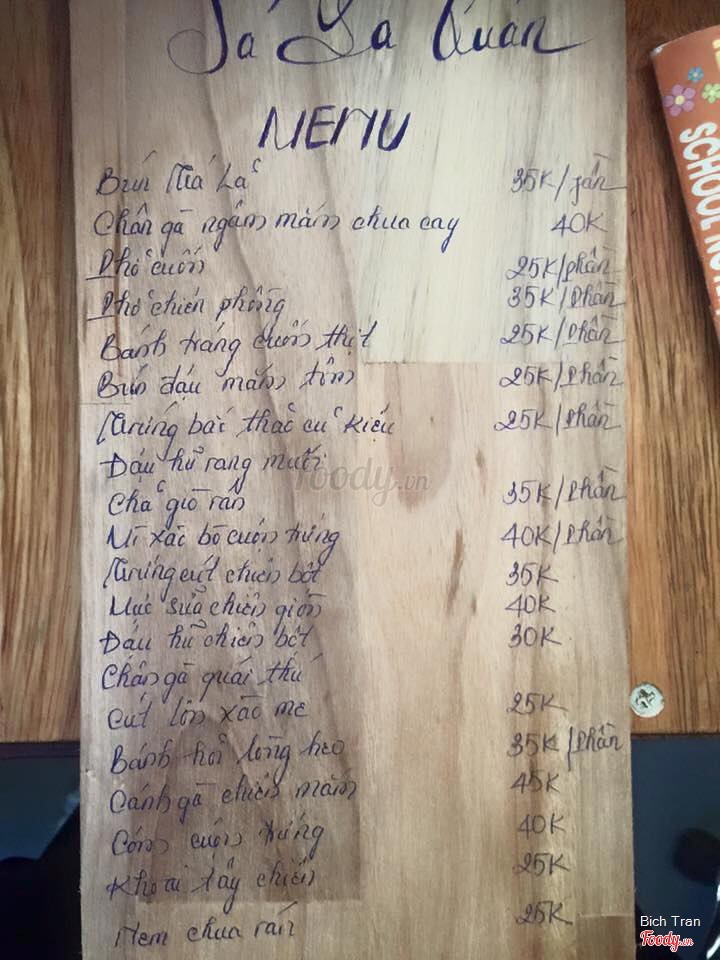 Tá Lả Quán
MENU
Bún Tná Lả 35K/phần
Chân gà ngâm mắm chua cay 40K
Phở cuốn 25K/phần
Phở chiên phồng 35K/Phần
Bánh tráng cuốn thịt 25K/Phần
Bún đậu mắm tôm 25K/Phần
Trứng bắc thảo củ kiệu 25K/Phần
Đậu hũ rang muối
Chả giò rán 35K/Phần
Mì xào bò cuộn trứng 40K/Phần
Trứng cút chiên bột 35K
Mực sữa chiên giòn 40K
Đậu hũ chiên bột 30K
Chân gà quái thú
Cút lộn xào me 25K
Bánh hỏi lòng heo 35K/Phần
Cánh gà chiên mắm 45K
Cơm cuộn trứng 40K
Khoai tây chiên 25K
Nem chua rán 25K
SCHOOL
foody.vn
Bich Tran
Foody.vn